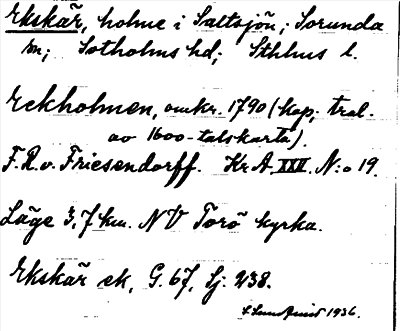 Ekskär, holme i Saltsjön; Sorunda
sn; Sotholms hd; Sthlms l.
Eckholmen, omkr. 1790 (kop. trol.
av 1600-talskarta).
F. R. v. Friesendorff. Kr. A. XXX. N:o 19.
Läge 3,7 km. NV Torö kyrka.
Ekskär ek, G. 67, Sj. 238.
1936.